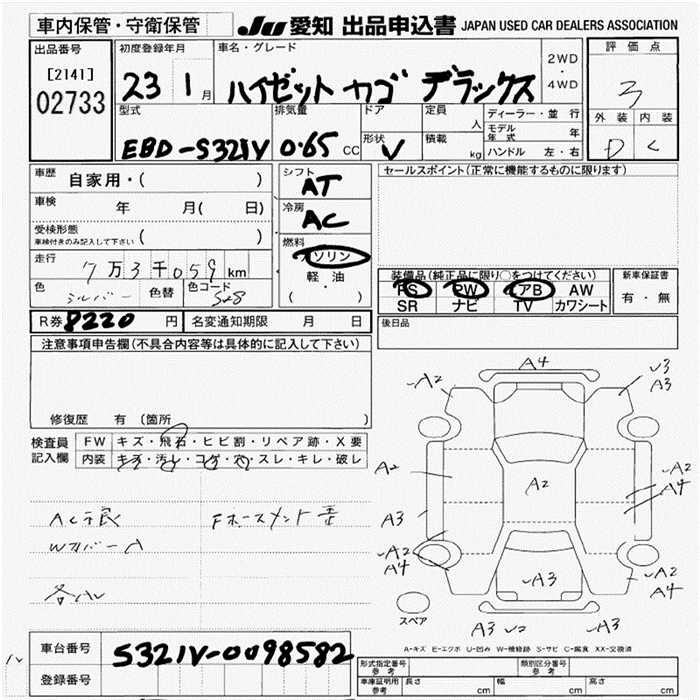 車内保管・守衛保管
JU 愛知 出品申込書 JAPAN USED CAR DEALERS ASSOCIATION
出品番号
[2141]
02733
初度登録年月
23 1月
車名・グレード
ハイゼット カゴ デラックス
2WD
・
4WD
評価点
3
外装 内装
D C
型式
EBD-S321V
排気量
0.65 CC
ドア
形状
V
定員
人
積載
kg
ディーラー・並行
モデル年式 年
ハンドル 左・右
車歴
自家用・( )
車検 年 月( 日)
受検形態
車検付きのみ記入して下さい ( )
走行
7万3千059km
色
シルバー
色替
色コード
S28
シフト
AT
冷房
AC
燃料
ソリン
軽・油
( ・ )
セールスポイント(正常に機能するものに限ります)
装備品(純正品に限り○をつけてください)
PS PW エアB AW
SR ナビ TV カワシート
新車保証書
有・無
後日品
R券 8220 円
名変通知期限 月 日
注意事項申告欄(不具合内容等は具体的に記入して下さい)
修復歴 有(箇所 )
検査員
記入欄
FW キズ・飛石・ヒビ割・リペア跡・X要
内装 キズ・汚レ・コゲ・穴・スレ・キレ・破レ
Wカバー A
A4
A2
A3
A2
A2
A3
A2
A4
A2
A4
A2
A4
A3
A3
A3
スペア
A-キズ E-エクボ U-凹み W-補修跡 S-サビ C-腐食 XX-交換済
車台番号
S321V-0098582
登録番号
形式指定番号
参考
類別区分番号
参考
車庫証明用
参考
長さ cm
幅 cm
高さ cm